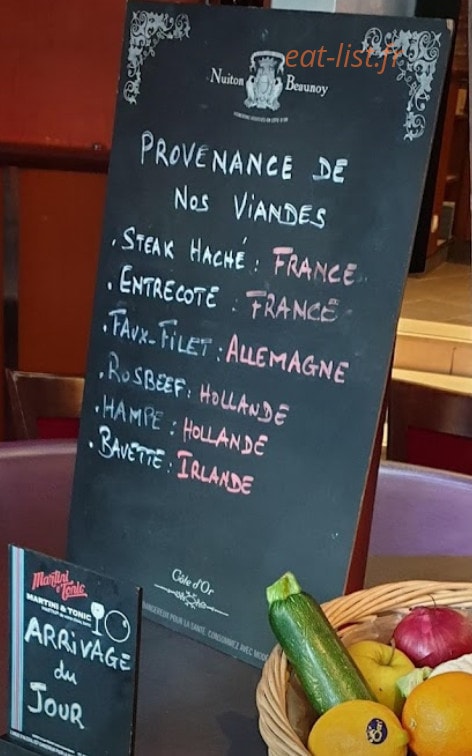 eat-list.fr
Nuiton Beaunoy
PROVENANCE DE
NOS VIANDES
. STEAK HACHÉ : FRANCE
. ENTRECOTE : FRANCE
. FAUX-FILET : ALLEMAGNE
. ROSBEEF : HOLLANDE
. HAMPE : HOLLANDE
. BAVETTE : IRLANDE
Côte d'Or
DANGEREUX POUR LA SANTÉ CONSOMMEZ AVEC
Martini & Tonic
MARTINI & TONIC
ARRIVAGE
du
JOUR